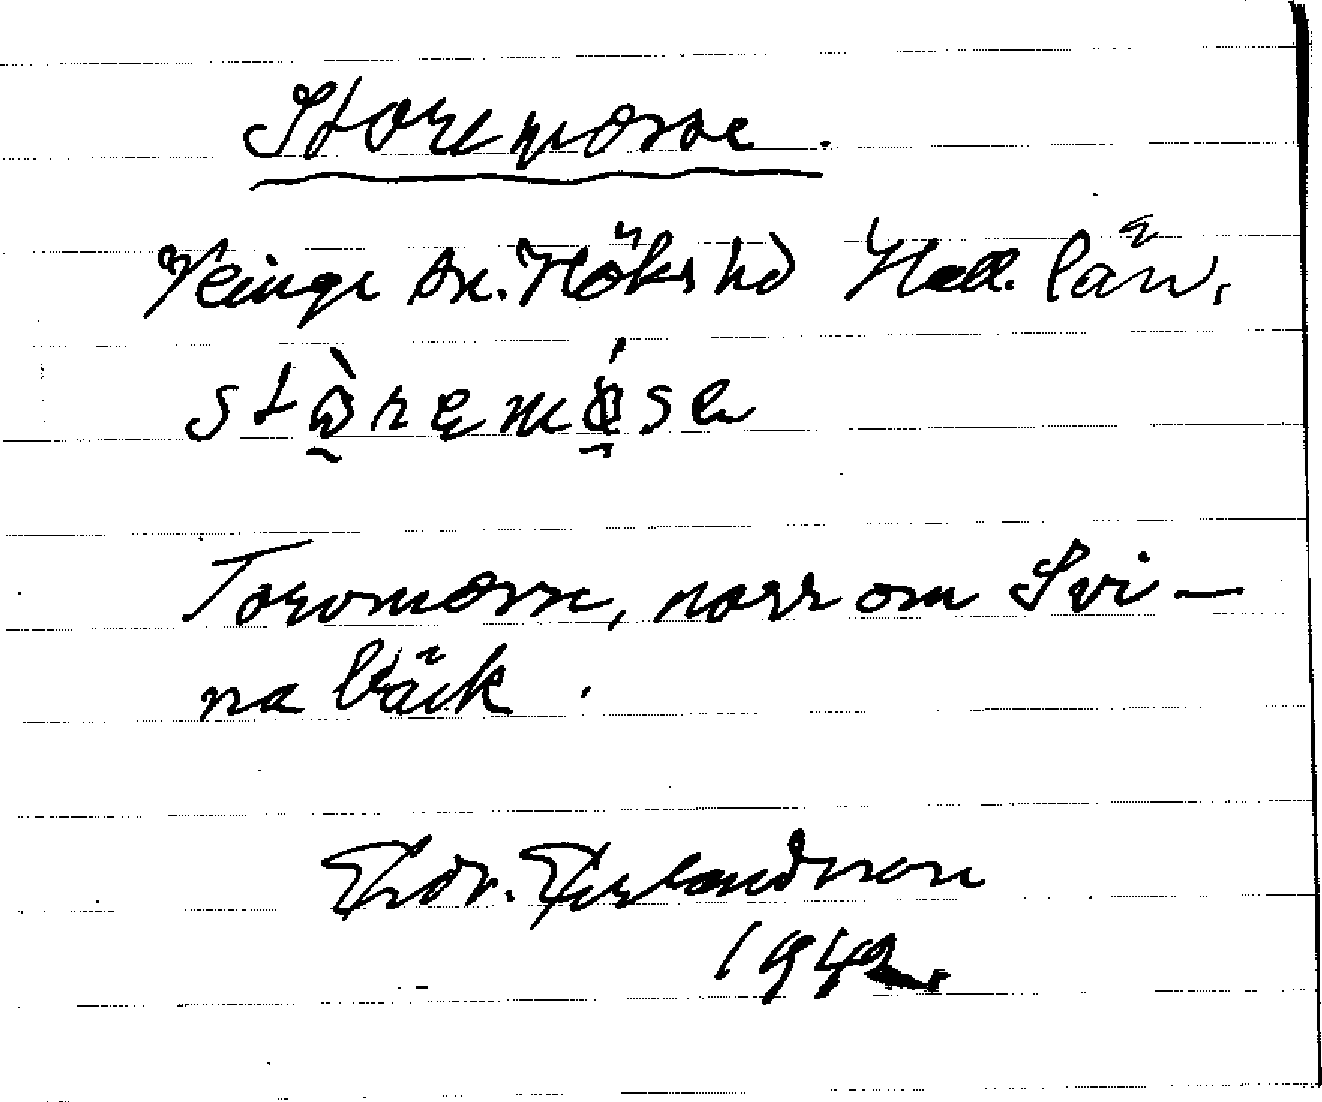 Storemosse.
Veinge sn. Höks hd Hall. län.
stòremóse
Torvmosse, norr om Svi-
na bäck.
Thdr. Erlandsson
1942.